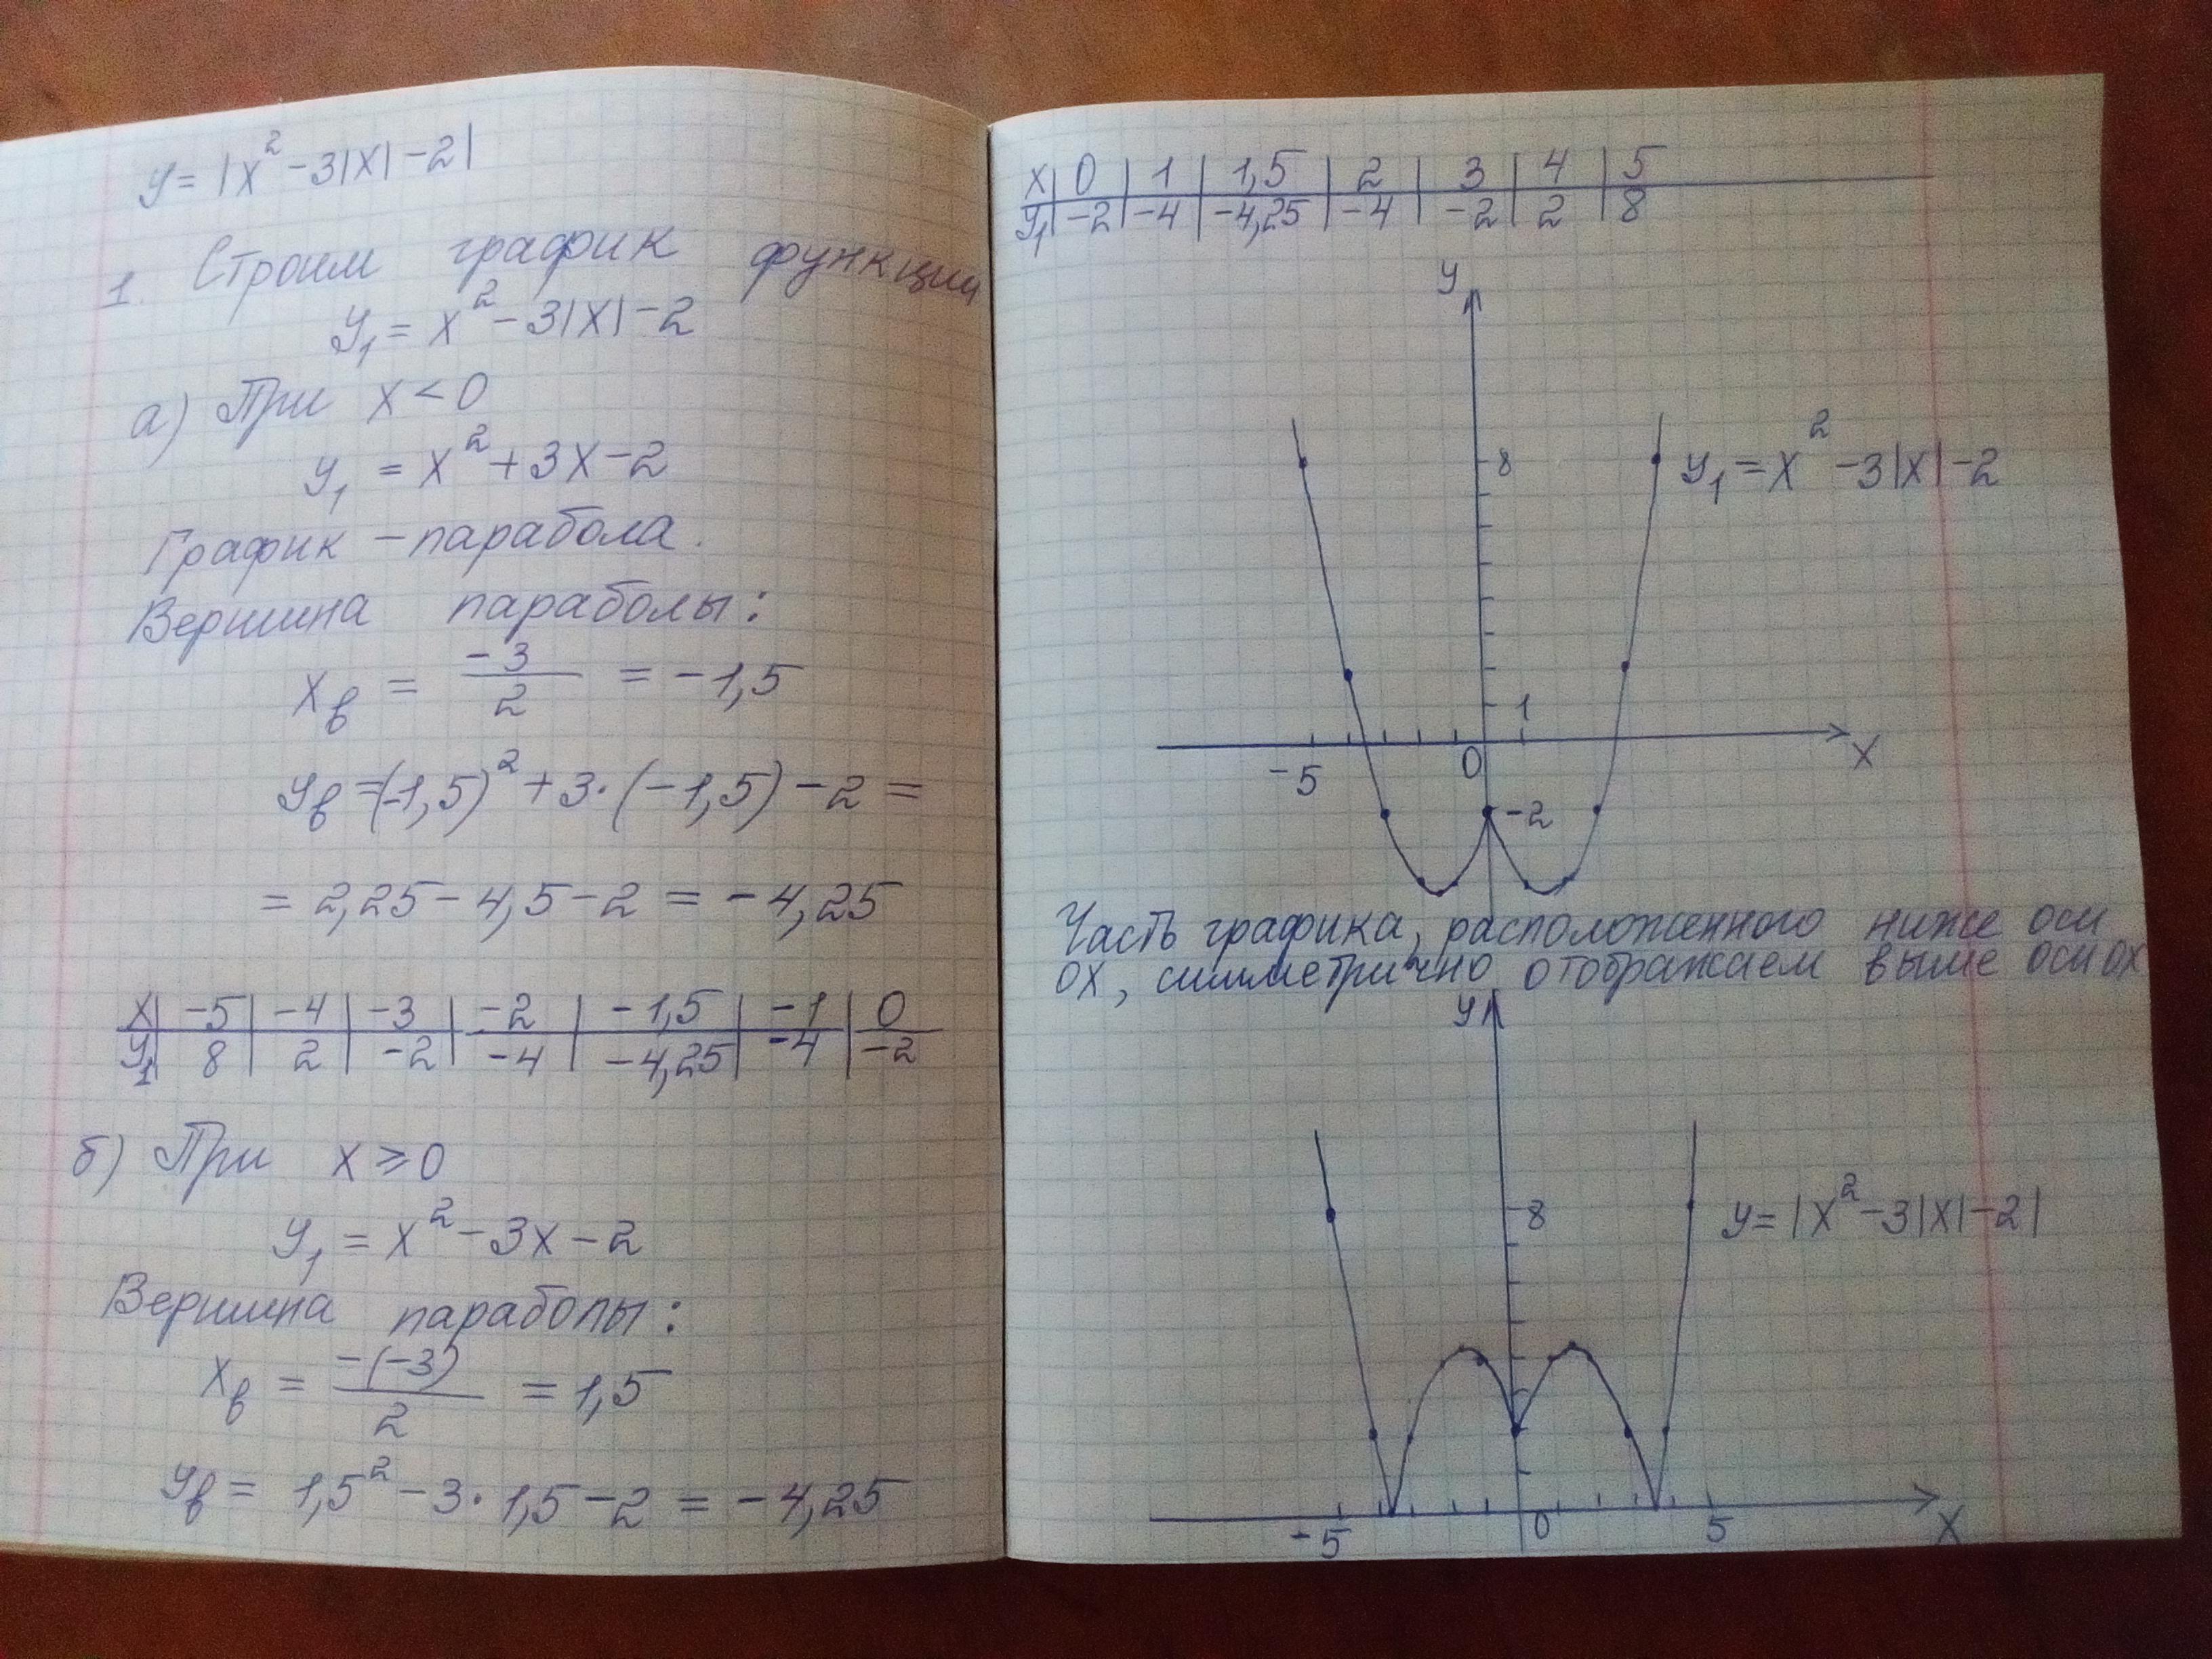 y = |x² - 3|x| - 2|
1. Строим график функции
y₁ = x² - 3|x| - 2
а) При x < 0
y₁ = x² + 3x - 2
График – парабола.
Вершина параболы:
xв = -3/2 = -1,5
yв = (-1,5)² + 3·(-1,5) - 2 =
= 2,25 - 4,5 - 2 = -4,25
x | -5 | -4 | -3 | -2 | -1,5 | -1 | 0
y₁ | 8 | 2 | -2 | -4 | -4,25 | -4 | -2
б) При x ≥ 0
y₁ = x² - 3x - 2
Вершина параболы:
xв = -(-3)/2 = 1,5
yв = 1,5² - 3·1,5 - 2 = -4,25
x | 0 | 1 | 1,5 | 2 | 3 | 4 | 5
y₁ | -2 | -4 | -4,25 | -4 | -2 | 2 | 8
y
8
y₁ = x² - 3|x| - 2
1
-5 0 x
-2
Часть графика, расположенного ниже оси
ох, симметрично отображаем выше оси ох
y
8
y = |x² - 3|x| - 2|
-5 0 5 x